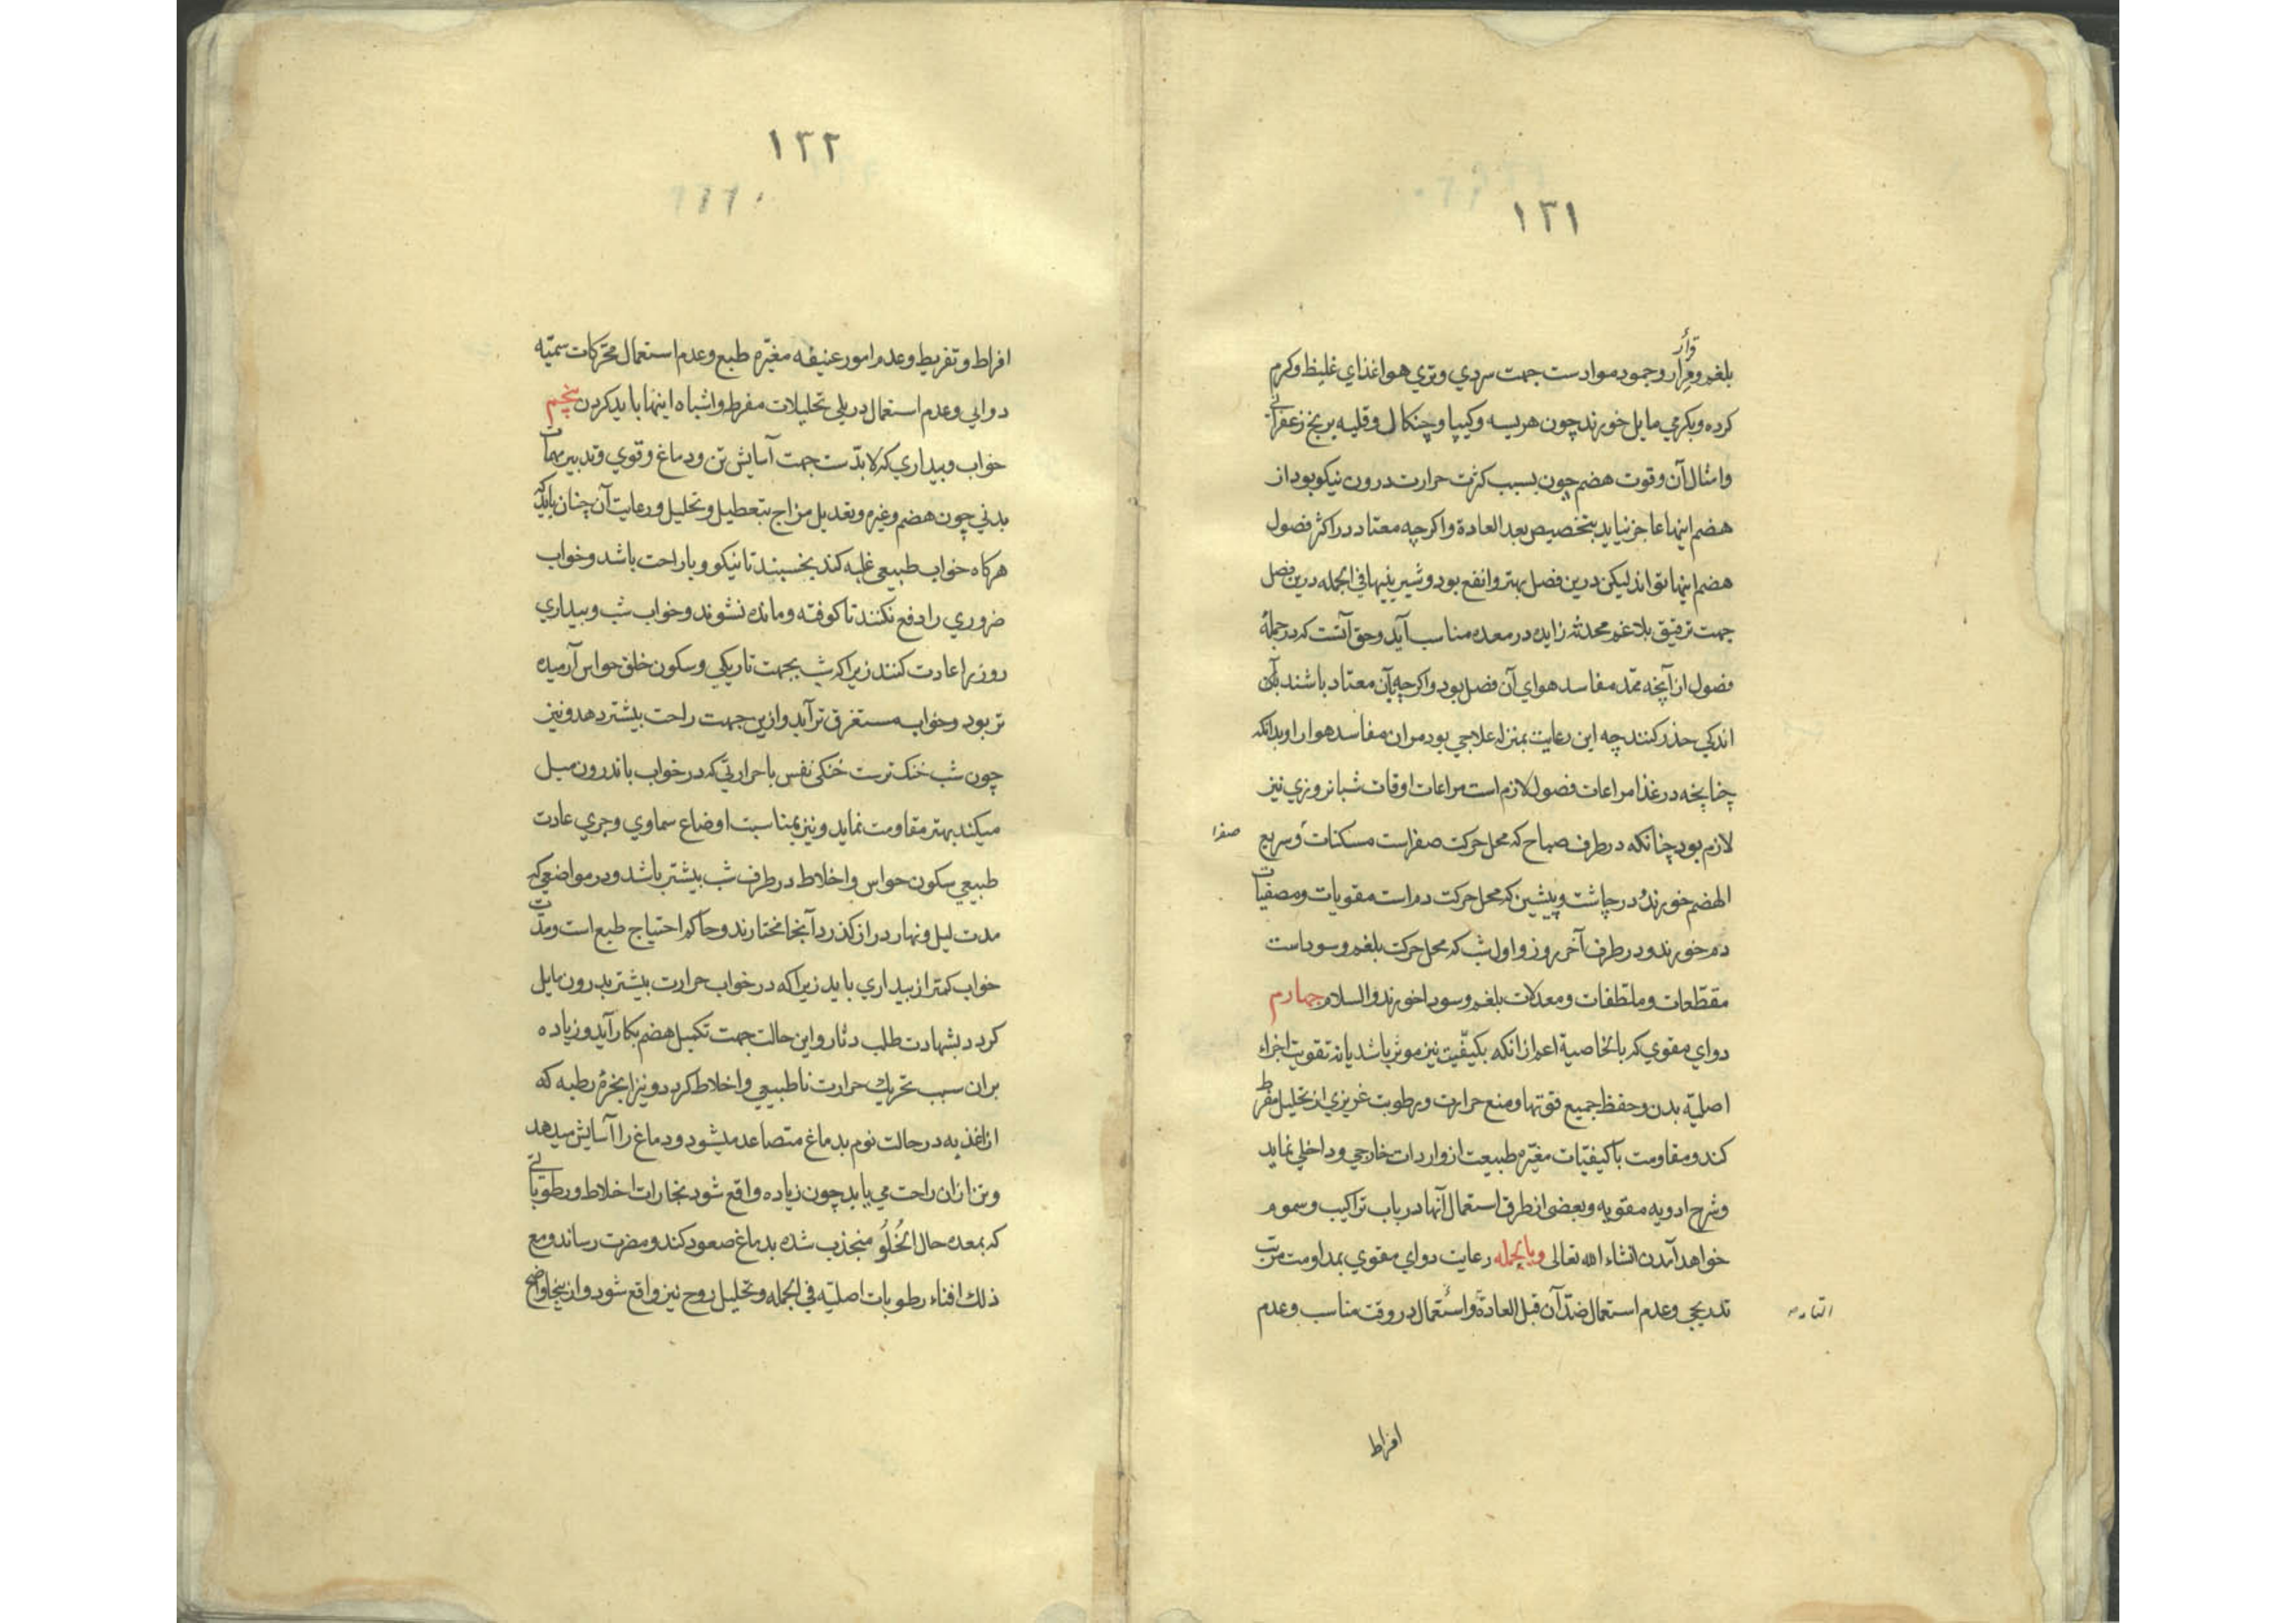 ۱۳۱
قرار
بلغم و قرار و جمود مواد ست جهت سردي و تري هوا غذاي غليظ و كرم
كرده و بكرمي مايل خورند چون هريسه و كيپا و چنكال و قليه برنج زعفراني
و امثال آن و قوت هضم چون بسبب كثرت حرارت درون نيكو بود از
هضم اينها عاجز نيايد بتخصيص بعد العادة و اكر چه معتاد در اكثر فصول
هضم اينها تواند ليكن درين فصل بهتر و انفع بود و شيرينيها في الجمله درين فصل
جهت ترقيق بلاغم محدثه زايده در معده مناسب آيد و حق آنست كه در جملهٔ
فصول از آنچه ممد مفاسد هواي آن فصل بود و اكر چه بآن معتاد باشند
اندكي حذر كنند چه اين رعايت بمنزله علاجي بود مر ان مفاسد هوا را و بدانكه
چنانچه در غذا مراعات فصول لازم است مراعات اوقات شبانروزي نيز
لازم بود چنانكه در طرف صباح كه محل حركت صفراست مسكنات و سريع
صفرا
الهضم خورند و در چاشت و پيشين كه محل حركت دم است مقويات و مصفيات
دم خورند و در طرف آخر روز و اول شب كه محل حركت بلغم و سوداست
مقطعات و ملطفات و معدلات بلغم و سودا خورند و السلام چهارم
دواي مقوي كه بالخاصية اعم از انكه بكيفيت نيز موثر باشد يا نه تقويت اجزاء
اصليه بدن و حفظ جميع قوتها و منع حرارت و رطوبت غريزي از تحليل مفرط
كند و مقاومت با كيفيات مغيره طبيعت از واردات خارجي و داخلي نمايد
و شرح ادويه مقويه و بعضي از طرق استعمال آنها در باب تراكيب و سموم
خواهد آمدن انشاء الله تعالى و بالجمله رعايت دواي مقوي بمداومت مرتب
تدريجي و عدم استعمال ضد آن قبل العادة و استعمال در وقت مناسب و عدم
افراط
۱۳۲
افراط و تفريط و عدم امور عنيفه مغيره طبع و عدم استعمال محركات سميه
دوايي و عدم استعمال در پلي تحليلات مفرط و اشباه اينها بايد كردن پنجم
خواب و بيداري كه لا بدست جهت آسايش تن و دماغ و قوي و تدبير مهمات
بدني چون هضم و غيره و تعديل مزاج بتعطيل و تحليل و رعايت آن چنان بايد كه
هركاه خواب طبيعي غلبه كند بخسبند تا نيكو و با راحت باشد و خواب
ضروري را دفع نكنند تا كوفته و مانده نشوند و خواب شب و بيداري
روز را عادت كنند زيرا كه شب بجهت تاريكي و سكون خلق حواس آرميده
تر بود و خواب مستغرق تر آيد و ازين جهت راحت بيشتر دهد و نيز
چون شب خنك ترست خنكي نفس با حرارتي كه در خواب باندرون ميل
ميكند بهتر مقاومت نمايد و نيز بمناسبت اوضاع سماوي و جري عادت
طبيعي سكون حواس و اخلاط در طرف شب بيشتر باشد و در مواضعي كه
مدت ليل و نهار دراز كذرد آنجا مختارند و حاكم احتياج طبع است و مدت
خواب كمتر از بيداري بايد زيرا كه در خواب حرارت بيشتر بدرون مايل
كردد بشهادت طلب دثار و اين حالت جهت تكميل هضم بكار آيد و زياده
بران سبب تحريك حرارت ناطبيعي و اخلاط كردد و نيز ابخرهٔ رطبه كه
از اغذيه در حالت نوم بدماغ متصاعد ميشود و دماغ را آسايش ميدهد
و تن ازان راحت مي يابد چون زياده واقع شود بخارات اخلاط و رطوباتي
كه بمعده حال الخُلُوّ منجذب شده بدماغ صعود كند و مضرت رساند و مع
ذلك افناء رطوبات اصليه في الجمله و تحليل روح نيز واقع شود و از ينجا واضح